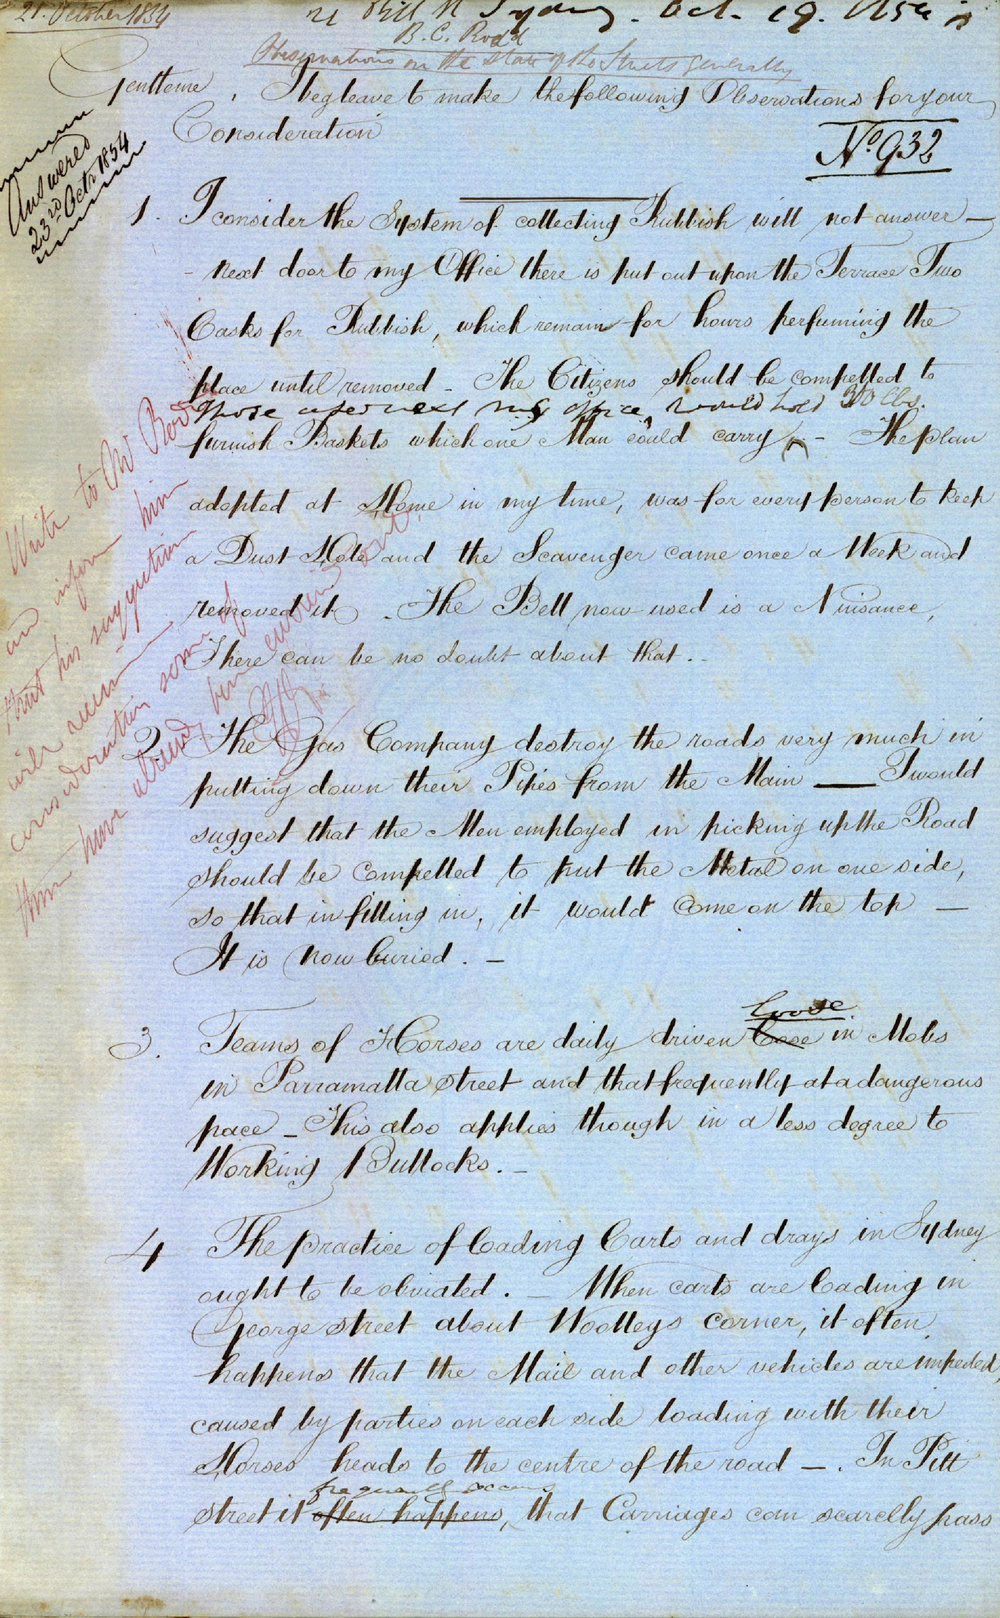 21. October 1854
21 Pitt St Sydney. Oct. 19. 1854
B. C. Rodd
Observations on the state of the Streets generally
Gentlemen, I beg leave to make the following Observations for your
Consideration
No. 932
Answered
23rd Octr 1854
1. I consider the System of collecting Rubbish will not answer —
- next door to my Office there is put out upon the Terrace Two
Casks for Rubbish, which remain for hours perfuming the
place until removed - The Citizens should be compelled to
Those used next my office, would hold 300 lbs.
furnish Baskets which one Man could carry ^ - The plan
adopted at Home in my time, was for every person to keep
a Dust Hole and the Scavenger came once a Week and
removed it. The Bell now used is a Nuisance,
There can be no doubt about that. -
Write to Mr Rodd
and inform him
that his suggestion
will receive
consideration some of
them have already been carried out
2. The Gas Company destroy the roads very much in
putting down their Pipes from the Main — I would
suggest that the Men employed in picking up the Road
should be compelled to put the Metal on one side,
so that in filling in, it would come on the top —
It is now buried. -
3. Teams of Horses are daily driven Loose loose in Mobs
in Parramatta street and that frequently at a dangerous
pace - This also applies though in a less degree to
Working Bullocks. -
4 The practice of loading Carts and drays in Sydney
ought to be obviated. - When carts are loading in
George street about Woolleys corner, it often
happens that the Mail and other vehicles are impeded,
caused by parties on each side loading with their
Horses heads to the centre of the road -. In Pitt
frequently occurs
street it often happens, that Carriages can scarcelly pass